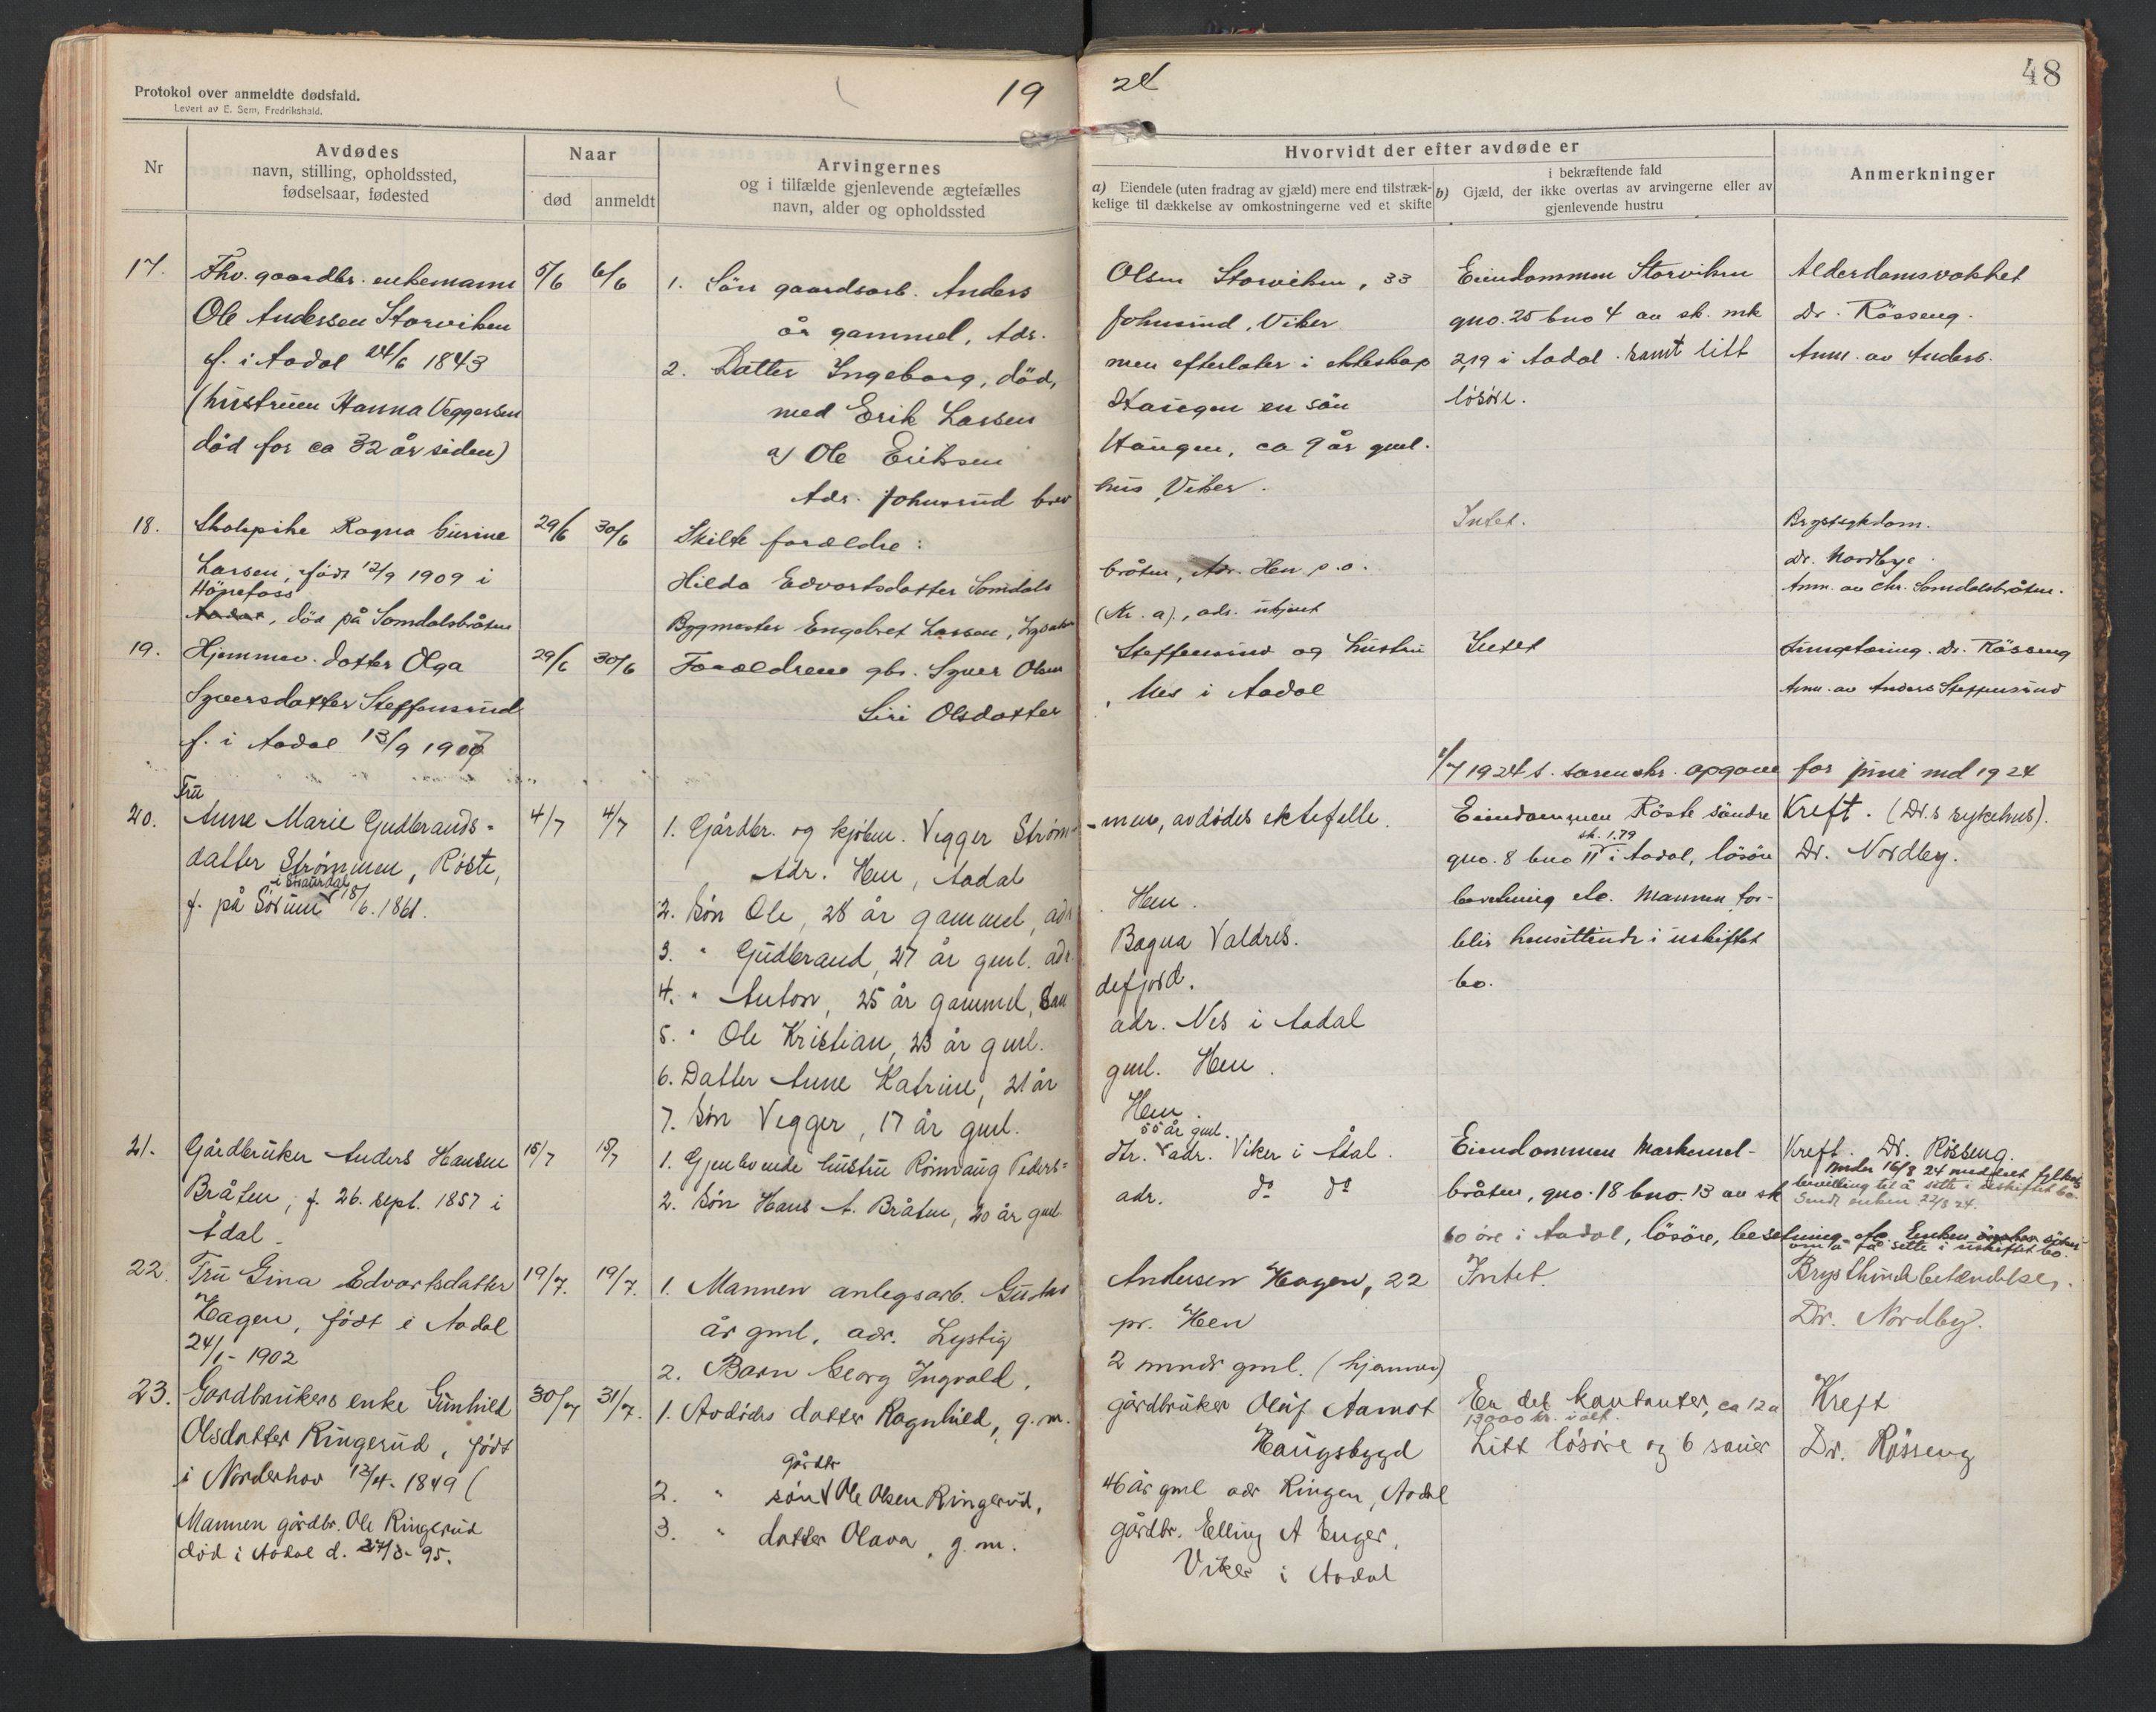 Protokol over anmeldte dødsfald.
Levert av E. Sem, Fredrikshald.
19 24
48
Nr
Avdødes
navn, stilling, opholdssted,
fødselsaar, fødested
Naar
død
anmeldt
Arvingernes
og i tilfælde gjenlevende ægtefælles
navn, alder og opholdssted
Hvorvidt der efter avdøde er
a) Eiendele (uten fradrag av gjæld) mere end tilstræk-
kelige til dækkelse av omkostningerne ved et skifte
i bekræftende fald
b) Gjæld, der ikke overtas av arvingerne eller av
gjenlevende hustru
Anmerkninger
17.
Fhv. gaardbr. enkemann
Ole Anderssen Storviken
f. i Aadal 24/6 1843
(hustruen Hanna Veggersen
død for ca 32 år siden)
5/6
6/6
1. Sön gaardsarb. Anders Olsen Storviken, 33
år gammel, Adr. Johnsrud, Viker
2. Datter Ingeborg, död, men efterlater i ekteskap
med Erik Larsen Haugen en sön
a) Ole Eriksen Haugen, ca 9 år gml.
Adr. Johnsrud hus, Viker.
Eiendommen Storviken
gno. 25 bno 4 av sk. mk
2,19 i Aadal samt litt
lösöre.
Alderdomsvakhet
Dr. Rösseng.
Anm. av Anders.
18.
Skolepike Ragna Gurine
Larsen, född 12/9 1909 i
Hönefoss
Aadal, död på Somdalsbråten
29/6
30/6
Skilte forældre:
Hilda Edvartsdatter Somdalsbråten, Adr. Hen p.o.
Bygmester Engebret Larsen, (Kr. a)., adr. ukjent
Intet.
Brystsykdom.
Dr. Nordbye.
Anm. av Chr. Somdalsbråten.
19.
Hjemmev. datter Olga
Syversdatter Steffensrud
f. i Aadal 13/9 1907
29/6
30/6
Forældrene gbr. Syver Olsen Steffensrud og hustru
Siri Olsdatter, Nes i Aadal
Intet
Lungetæring. Dr. Rösseng
Anm. av Anders Steffensrud
1/7 1924 s. sorenskr. opgave for juni md 1924
20.
Fru
Anne Marie Gudbrands-
datter Strømmen, Røste,
i Snaurdal
f. på Sörum 18/6. 1861.
4/7
4/7
1. Gårdbr. og kjøbm. Vegger Strøm-men, avdödes ektefelle.
Adr. Hen, Aadal
2. Sön Ole, 28 år gammel, adr. Hen.
3. " Gudbrand, 27 år gml. adr. Bagna Valdres.
4. " Anton, 25 år gammel, Sandefjord.
5. " Ole Kristian, 23 år gml. adr. Nes i Aadal
6. Datter Anne Katrine, 21 år gml. Hen.
7. Sön Vegger, 17 år gml. Hen.
Eiendommen Röste söndre
sk. 1.79
gno. 8 bno 11 i Aadal, lösöre
besetning etc. Mannen for-
blir hensittende i uskiftet
bo.
Kreft. (Dr.s sykehus).
Dr. Nordby.
21.
Gårdbruker Anders Hansen
Bråten, f. 26. sept. 1857 i
Ådal.
15/7
15/7
55 år gml.
1. Gjenlevende hustru Rönnaug Peders-dtr. adr. Viker i Ådal.
2. Sön Hans A. Bråten, 20 år gml. adr. do do
Eiendommen Markemel-
bråten, gno. 18 bno. 13 av sk
60 öre i Aadal, lösöre, besetning etc. Enken
om å få sitte i uskiftet bo.
Kreft. Dr. Rösseng.
Under 16/8 24 meddelt fylkets
bevilling til å sitte i uskiftet bo.
Sendt enken 22/8 24.
22.
Fru Gina Edvartsdatter
Hagen, född i Aadal
24/1 - 1902
19/7.
19/7.
1. Mannen anlegsarb. Gustav Andersen Hagen, 22
år gml, adr. Lystig pr. Hen
2. Barn Georg Ingvald, 2 mndr gml. (hjemme)
Intet.
Brysthindebetændelse.
Dr. Nordby.
23.
Gardbrukers enke Gunhild
Olsdatter Ringerud, född
i Norderhov 13/4. 1849 (
Mannen gårdbr. Ole Ringerud
död i Aadal d. 27/3 - 95.
30/7
31/7.
1. Avdödes datter Ragnhild, g.m. gårdbruker Oluf Aamot
Haugsbygd
gårdbr
2. " sön Ole Olsen Ringerud, 46 år gml adr Ringen, Aadal
3. " datter Olava, g.m. gårdbr. Elling A Enger,
Viker i Aadal
En del kontanter, ca 12 a
13000 kr. i alt.
Litt lösöre og 6 sauer
Kreft
Dr. Rösseng